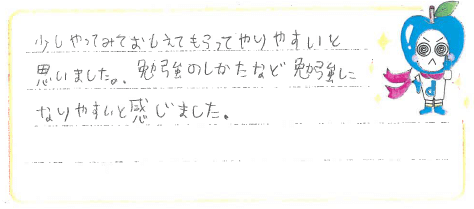 少しやってみておしえてもらってやりやすいと
思いました。勉強のしかたなど勉強に
なりやすいと感じました。